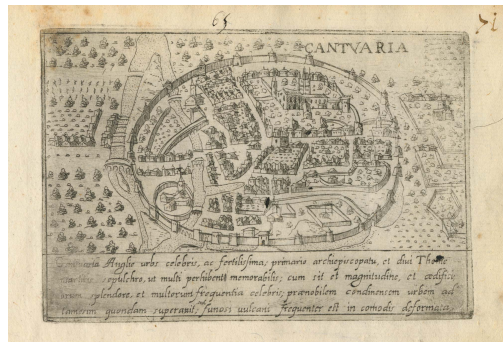 65
71
CANTVARIA
Cantuaria Angliæ urbs celebris, ac fertilissima; primario archiepiscopatu, et divi Thomæ
martiris sepulchro, ut multi perhibent memorabilis; cum sit et magnitudine, et ædificio
rum splendore, et multorum frequentia celebris; prænobilem condinensem urbem ad
tamerim quondam superavit; sed funosi vulcani frequenter est in comodis deformata